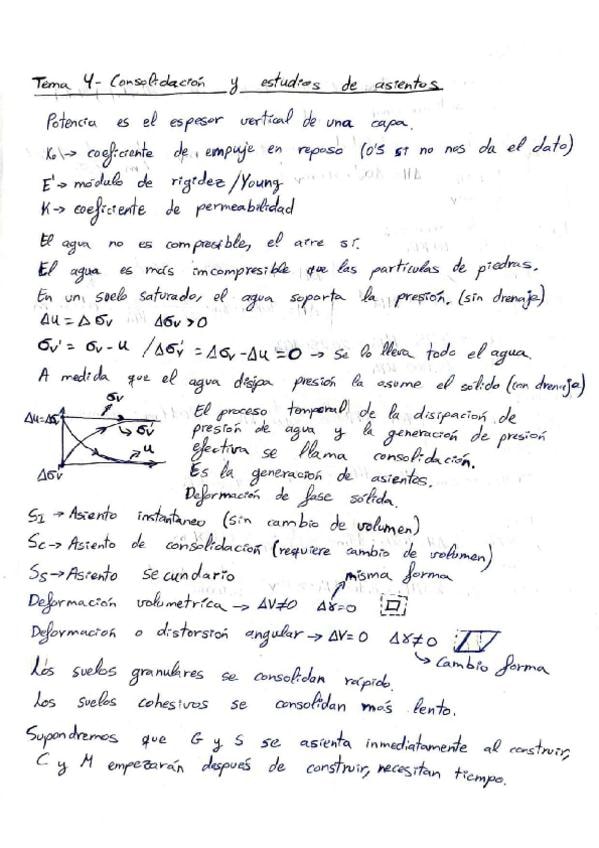 Tema 4- Consolidación y estudios de asientos
Potencia es el espesor vertical de una capa.
K₀ → coeficiente de empuje en reposo (0'5 si no nos da el dato)
E' → módulo de rigidez/Young
K → coeficiente de permeabilidad
El agua no es compresible, el aire sí.
El agua es más incompresible que las partículas de piedras.
En un suelo saturado, el agua soporta la presión. (sin drenaje)
Δu = Δσv Δσv > 0
σv' = σv - u / Δσv' = Δσv - Δu = 0 → se lo lleva todo el agua.
A medida que el agua disipa presión la asume el sólido (con drenaje)
σv
Δu=Δσ
σv'
u
Δσv
El proceso temporal de la disipacion de
presión de agua y la generación de presión
efectiva se llama consolidación.
Es la generación de asientos.
Deformación de fase sólida.
SI → Asiento instantaneo (sin cambio de volumen)
Sc → Asiento de consolidación (requiere cambio de volumen)
Ss → Asiento secundario
misma forma
Deformación volumetrica → ΔV≠0 Δγ=0
Deformacion o distorsión angular → ΔV=0 Δγ≠0
→ Cambio forma
Los suelos granulares se consolidan rápido.
Los suelos cohesivos se consolidan más lento.
Supondremos que G y S se asienta inmediatamente al construir,
C y M empezarán después de construir, necesitan tiempo.